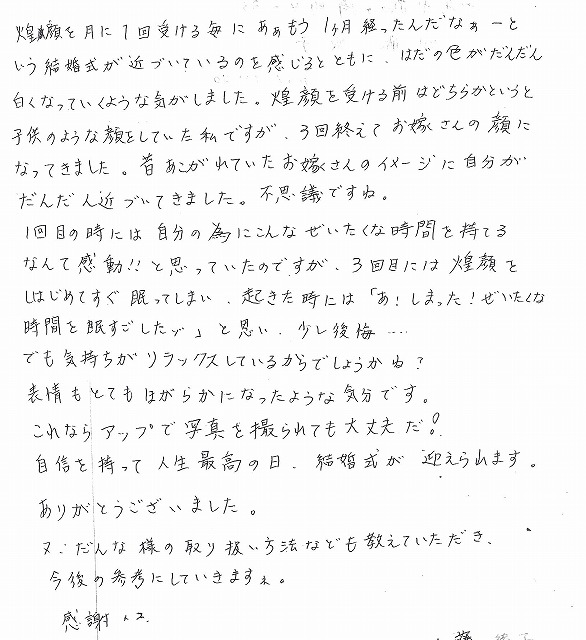 煌顔を月に1回受ける毎にあぁもう1ヶ月経ったんだなぁーと
いう結婚式が近づいているのを感じるとともに、はだの色がだんだん
白くなっていくような気がしました。煌顔を受ける前はどちらかというと
子供のような顔をしていた私ですが、3回終えてお嫁さんの顔に
なってきました。昔あこがれていたお嫁さんのイメージに自分が
だんだん近づいてきました。不思議ですね。
1回目の時には自分の為にこんなぜいたくな時間を持てる
なんて感動!!と思っていたのですが、3回目には煌顔を
はじめてすぐ眠ってしまい、起きた時には「あ!しまった!ぜいたくな
時間を眠すごした〃」と思い、少し後悔……
でも気持ちがリラックスしているからでしょうかね?
表情もとてもほがらかになったような気分です。
これならアップで写真を撮られても大丈夫だ!
自信を持って人生最高の日、結婚式が迎えられます。
ありがとうございました。
又、だんな様の取り扱い方法なども教えていただき、
今後の参考にしていきますね。
感謝